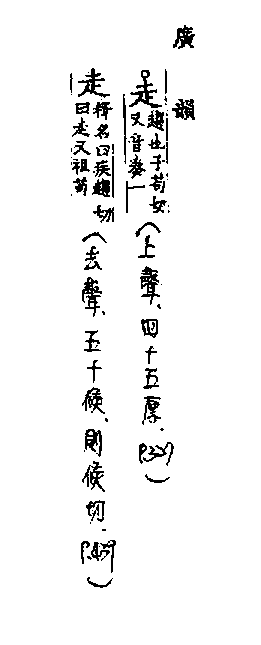 廣韻
走 趨也子苟切又音奏一 (上聲、四十五厚、P.327)
走 釋名曰疾趨曰走又祖苟切 (去聲、五十候、則候切、P.439)